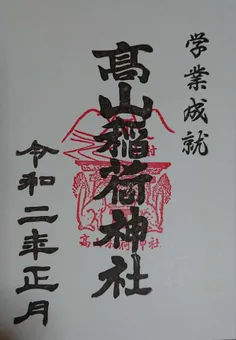 学業成就
髙山稲荷神社
令和二年正月